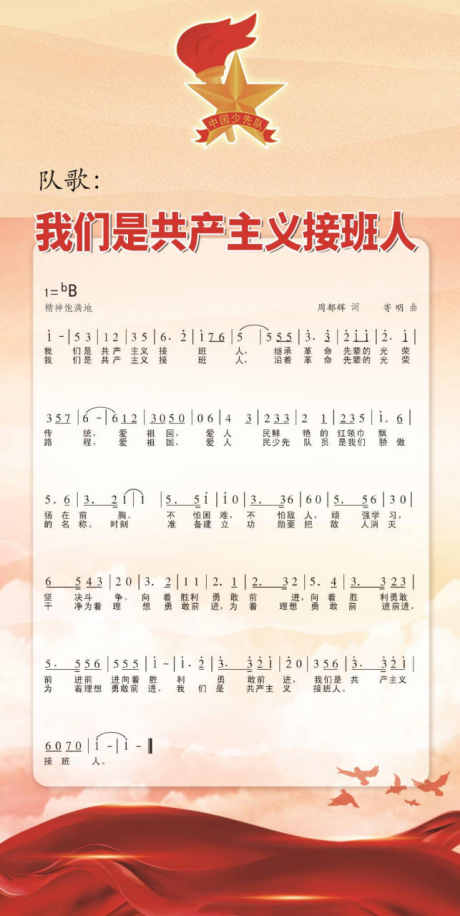 中国少先队
队歌：
我们是共产主义接班人
1=♭B
精神饱满地 周郁辉 词 寄明 曲
1̇ - | 5 3 | 1 2 | 3 5 | 6. 2 | 1̇ 7 6 | 5 | 5 5 5 | 3. 3 | 2 1̇ 1̇ | 2. 1̇ |
我 们是 共产 主义 接 班 人， 继承 革命 先辈的 光荣
我 们是 共产 主义 接 班 人， 沿着 革命 先辈的 光荣
3 5 7 | 6 - | 6 1 2 | 3 0 5 0 | 0 6 | 4 3 | 2 3 3 | 2 1 | 2 3 5 | 1. 6 |
传 统， 爱 祖国， 爱人 民鲜 艳的 红领巾 飘
路 程， 爱 祖国， 爱人 民少先 队 员 是我们 骄傲
5. 6 | 3. 2 1̇ | 1̇ | 5. 5 1̇ | 1̇ 0 | 3. 3 6 | 6 0 | 5. 5 6 | 3 0 |
扬 在 前 胸。 不 怕困 难， 不 怕敌 人， 顽 强学 习，
的 名 称。 时刻 准 备建 立 功 勋要 把 敌 人消 灭
6 5 4 3 | 2 0 | 3. 2 | 1 1 | 2. 1 | 2. 3 2 | 5. 4 | 3. 3 2 3 |
坚 决斗 争。 向 着 胜利 勇 敢 前 进，向 着 胜 利勇敢
干 净为着 理 想 勇敢 前 进，为 着 理想 勇 敢 前 进前进，
5. 5 5 6 | 5 5 5 | 1̇ - | 1̇. 2̇ | 3̇. 3̇ 2̇ 1̇ | 2̇ 0 | 3 5 6 | 3̇. 3̇ 2̇ 1̇ |
前 进前 进向着 胜 利 勇 敢前 进， 我们是 共 产主义
为 着理想 勇敢前 进， 我 们 是 共产主 义 接班人。
6 0 7 0 | 1̇ - | 1̇ - ‖
接 班 人。